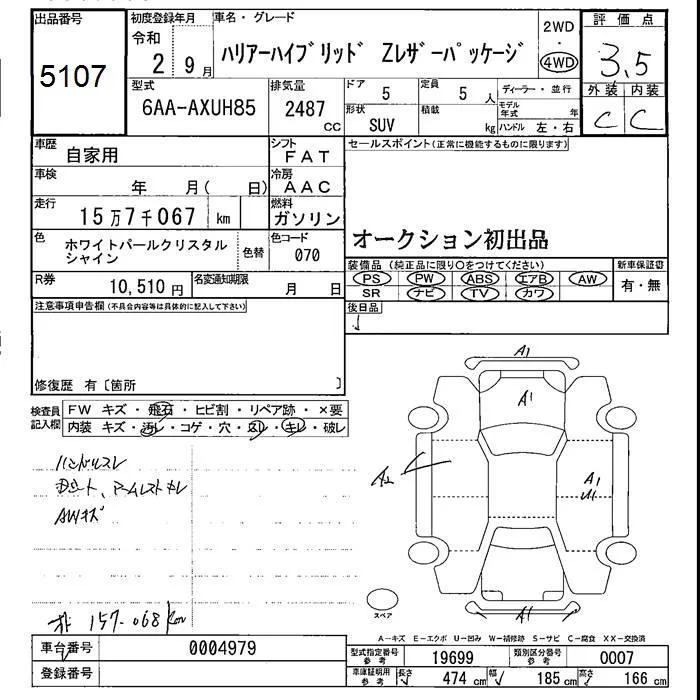 出品番号
5107
初度登録年月
令和
2 9月
車名・グレード
ハリアーハイブリッド Zレザーパッケージ
2WD
4WD
評価点
3.5
外装 内装
C C
型式
6AA-AXUH85
排気量
2487
CC
ドア
5
定員
5 人
形状
SUV
積載
kg
ディーラー・並行
モデル年式 年
ハンドル 左・右
車歴
自家用
シフト
FAT
車検
年 月( 日)
冷房
AAC
走行
15万7千067 km
燃料
ガソリン
色
ホワイトパールクリスタル
シャイン
色替
色コード
070
R券
10,510 円
名変通知期限
月 日
セールスポイント(正常に機能するものに限ります)
オークション初出品
装備品 (純正品に限り○をつけてください)
PS PW ABS エアB AW
SR ナビ TV カワ
新車保証書
有・無
後日品
注意事項申告欄(不具合内容等は具体的に記入して下さい)
修復歴 有〔箇所 〕
検査員
記入欄
FW キズ・飛石・ヒビ割・リペア跡・×要
内装 キズ・汚レ・コゲ・穴・凹レ・キレ・破レ
ハンドルスレ
シート、アームレスト キレ
AWキズ
157-068 km
A1
A1
A2
A1
U1
A1
スペア
A-キズ E-エクボ U-凹み W-補修跡 S-サビ C-腐食 XX-交換済
車台番号
0004979
登録番号
型式指定番号
参考
19699
類別区分番号
参考
0007
車庫証明用
参考
長さ
474 cm
幅
185 cm
高さ
166 cm